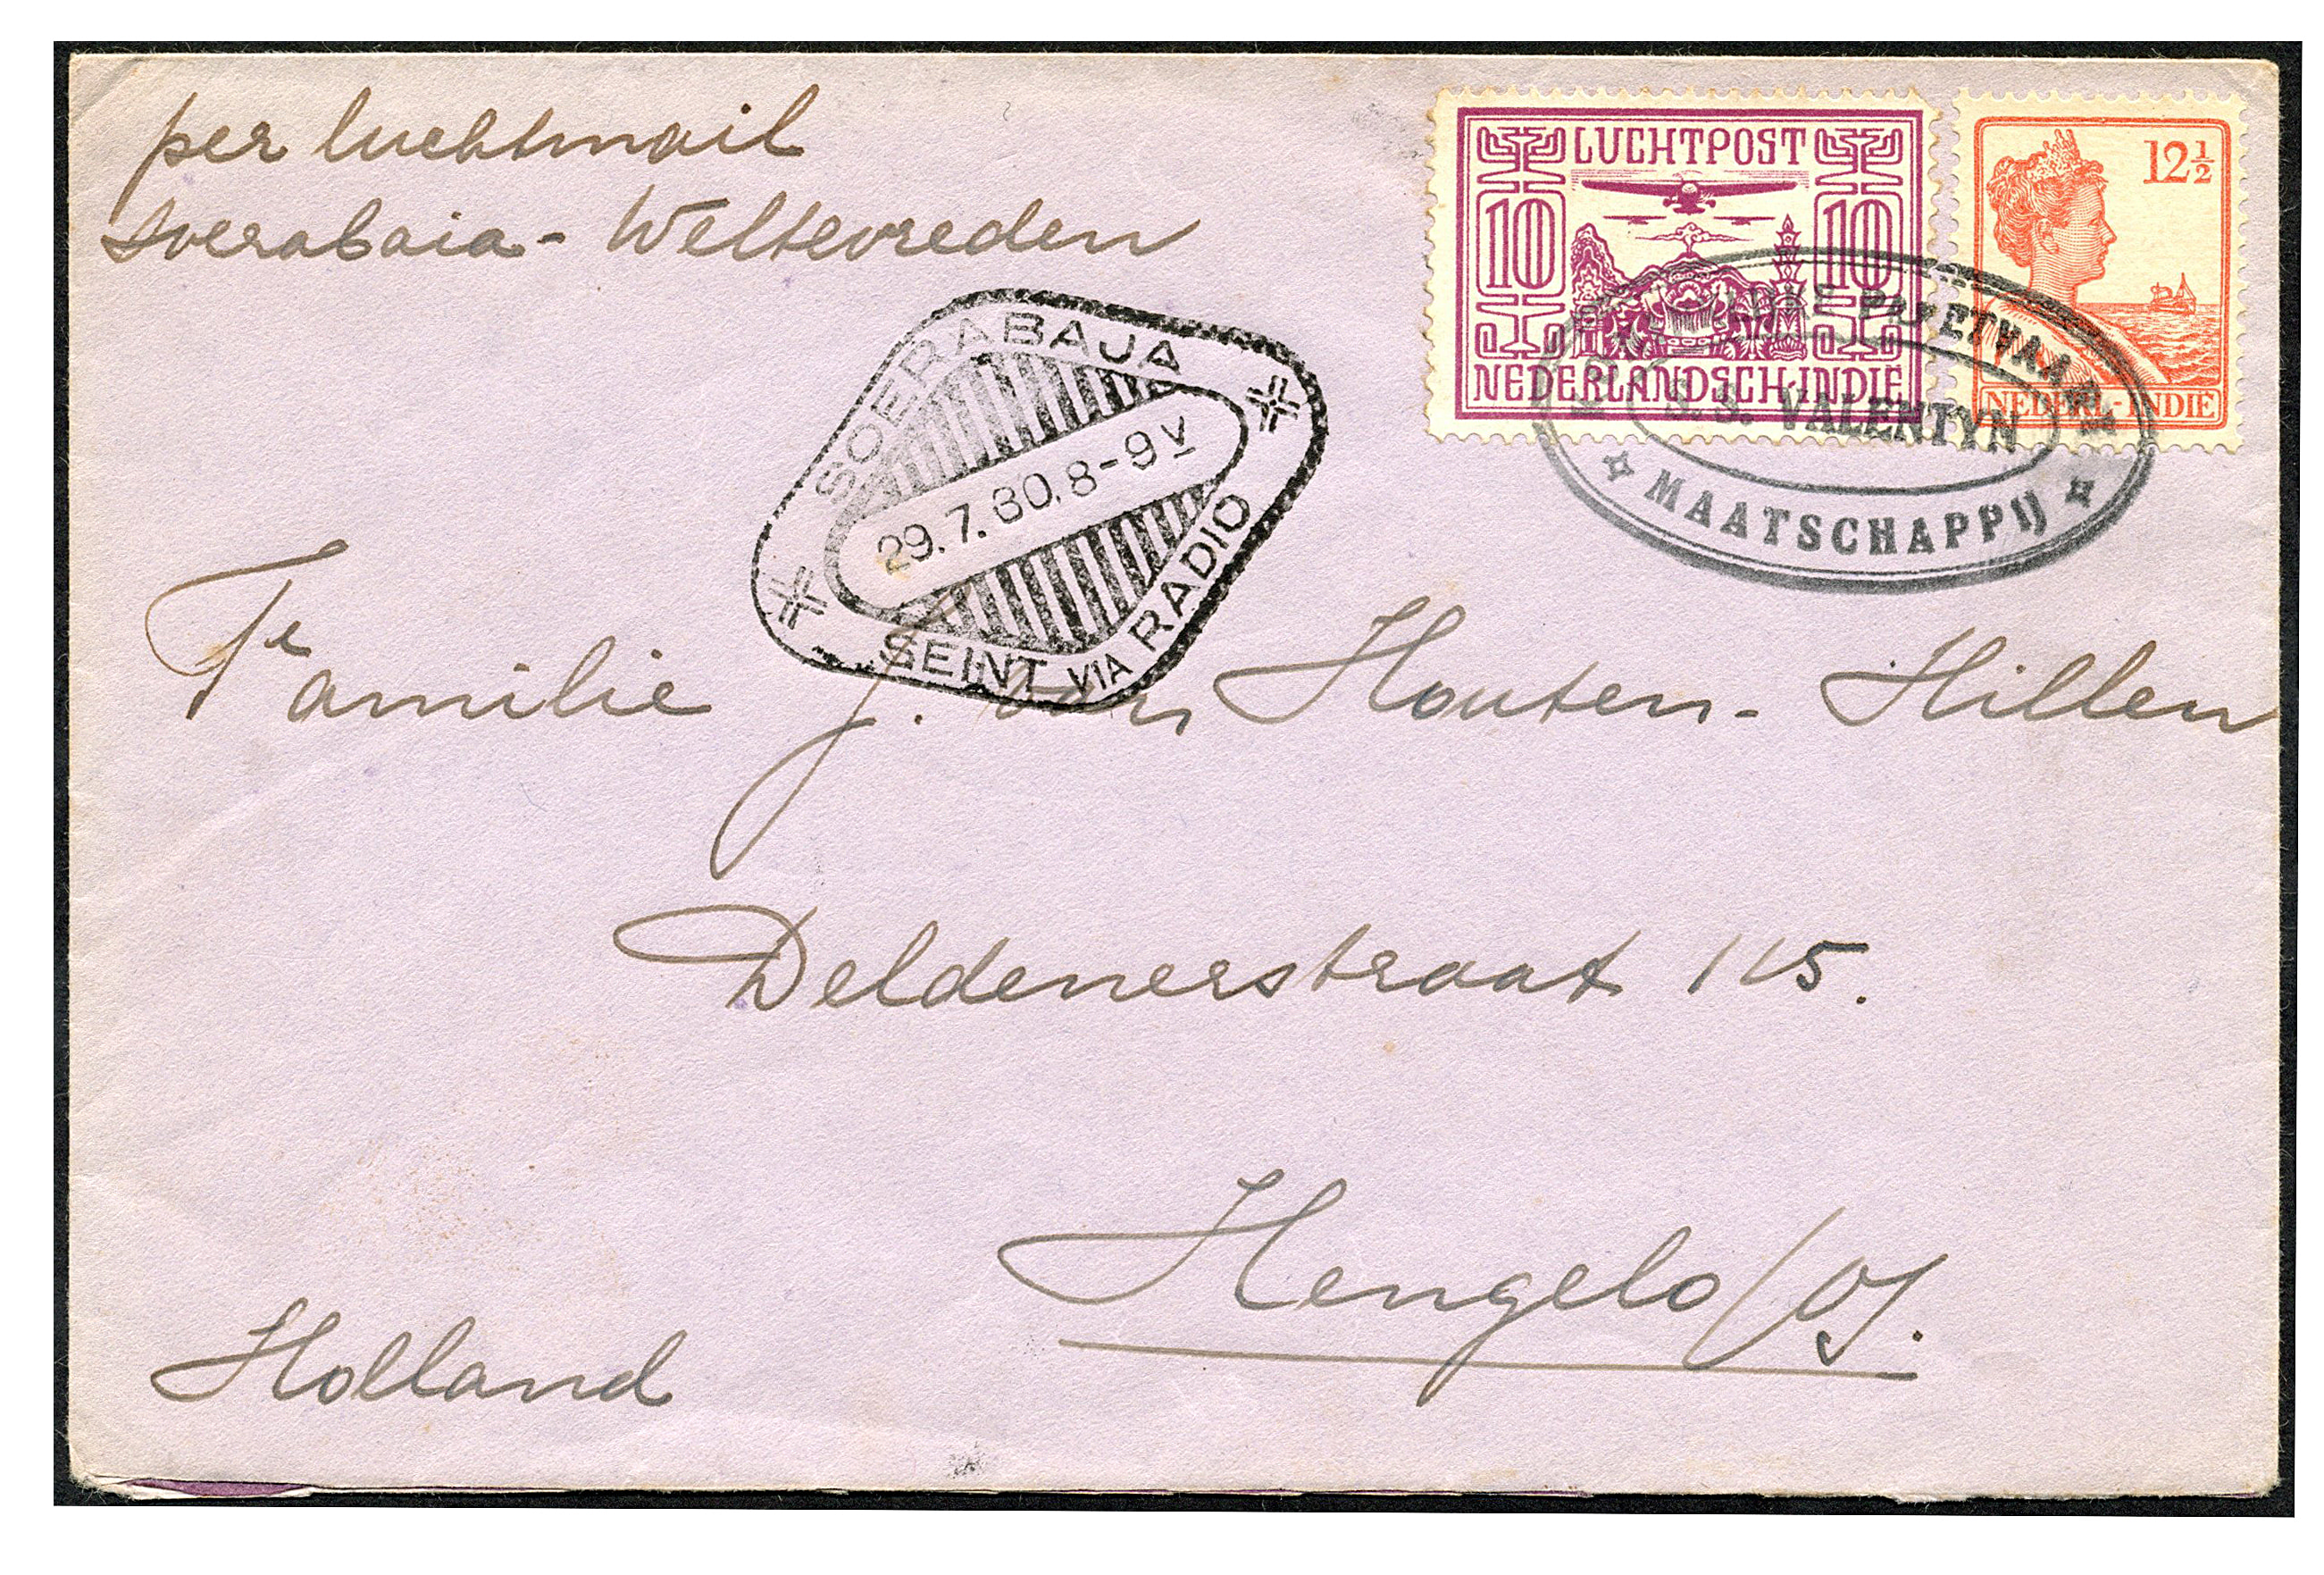 per luchtmail
Soerabaia - Weltevreden
LUCHTPOST
10 10
NEDERLANDSCH-INDIË
12½
NEDERL-INDIË
PAKETVAART
S.S. VALENTYN
MAATSCHAPPIJ
SOERABAJA
29.7.30.8-9V
SEINT VIA RADIO
Familie J. van Houten - Hillen
Deldenerstraat 115.
Hengelo/O.
Holland